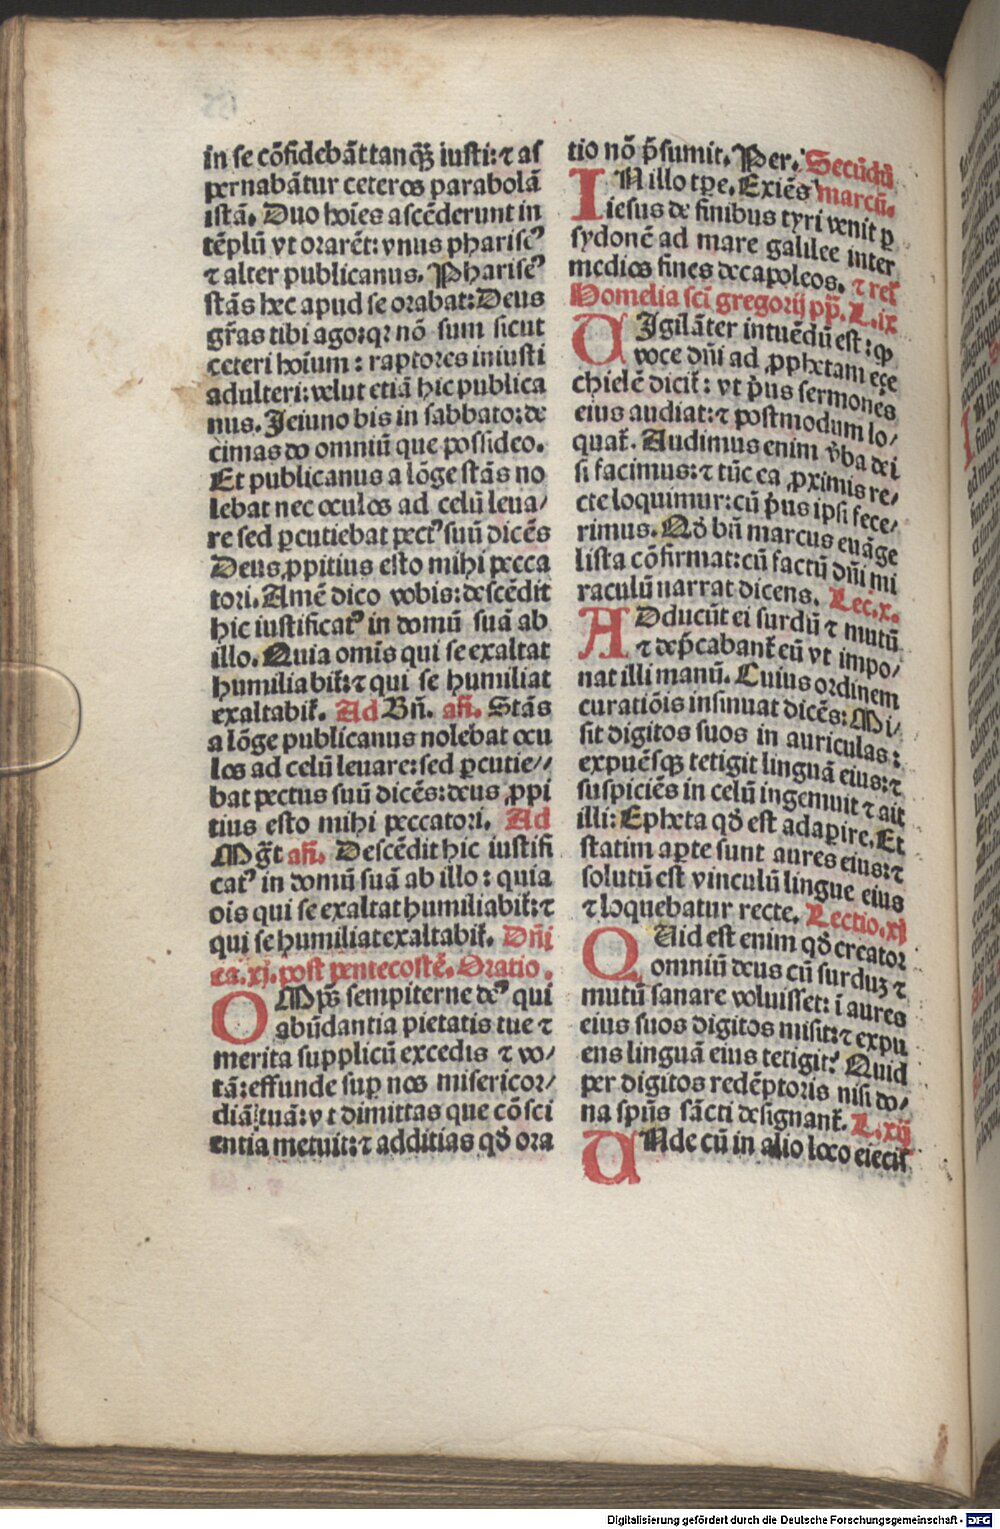 in se cõfidebãt tanq̃ꝫ iusti: ⁊ as
pernabãtur ceteros parabolã
istã. Duo hoĩes ascẽderunt in
tẽplũ vt orarẽt: vnus pharisẽꝰ
⁊ alter publicanus. Pharisẽꝰ
stãs hec apud se orabat: Deus
gr̃as tibi ago: qꝛ nõ sum sicut
ceteri hoĩum: raptores iniusti
adulteri: velut etiã hic publica
nus. Jeiuno bis in sabbato: de
cimas do omniũ que possideo.
Et publicanus a lõge stãs no
lebat nec oculos ad celũ leua/
re sed ꝑcutiebat pectꝰ suũ dicẽs
Deus ꝓpitius esto mihi pecca
tori. Amẽ dico vobis: descẽdit
hic iustificatꝰ in domũ suã ab
illo. Quia omĩs qui se exaltat
humiliabit̃: ⁊ qui se humiliat
exaltabit̃. Ad Bñ. añ. Stãs
a lõge publicanus nolebat ocu
los ad celũ leuare: sed ꝑcutie//
bat pectus suũ dicẽs: deus ꝓpi
tius esto mihi peccatori. Ad
Mg̃t añ. Descẽdit hic iustifi
catꝰ in domũ suã ab illo: quia
oĩs qui se exaltat humiliabit̃: ⁊
qui se humiliat exaltabit̃. Dñi
ca. xj. post pentecostẽ. Oratio.
OMp̃s sempiterne deꝰ qui
abũdantia pietatis tue ⁊
merita supplicũ excedis ⁊ vo/
tã: effunde suꝑ nos misericor/
diã tuã: vt dimittas que cõsci
entia metuit: ⁊ addicias qd̃ ora
tio nõ p̃sumit. Per. Secũdũ
IN illo tꝑe. Exiẽs marcũ.
iesus de finibus tyri venit ꝑ
sydonẽ ad mare galilee inter
medios fines decapoleos. ⁊ rel̃
Homelia scĩ gregorij pp̃. L. ix
UIgilãter intuẽdũ est: qꝙ
voce dñi ad ꝓphetam eȝe
chielẽ dicit̃: vt p̃us sermones
eius audiat: ⁊ postmodum lo/
quat̃. Audimus enim v̾ba dei
si facimus: ⁊ tũc ea ꝓximis re/
cte loquimur: cũ p̃us ipsi fece/
rimus. Qd̃ bñ marcus euãge
lista cõfirmat: cũ factũ dñi mi
raculũ narrat dicens. Lec. x.
ADducũt ei surdũ ⁊ mutũ
⁊ dep̃cabant̃ eũ vt impo/
nat illi manũ. Cuius ordinem
curatiõis insinuat dicẽs: Mi/
sit digitos suos in auriculas:
expuẽsqꝫ tetigit linguã eius: ⁊
suspiciẽs in celũ ingemuit ⁊ ait
illi: Epheta qd̃ est adaperire. Et
statim aꝑte sunt aures eius: ⁊
solutũ est vinculũ lingue eius
⁊ loquebatur recte. Lectio. xj
QUid est enim qd̃ creator
omniũ deus cũ surduꝫ ⁊
mutũ sanare voluisset: ĩ aures
eius suos digitos misit: ⁊ expu
ens linguã eius tetigit? Quid
per digitos redẽptoris nisi do/
na sp̃us sãcti designant̃. L. xij
UNde cũ in alio loco eiecis̃
Digitalisierung gefördert durch die Deutsche Forschungsgemeinschaft - DFG